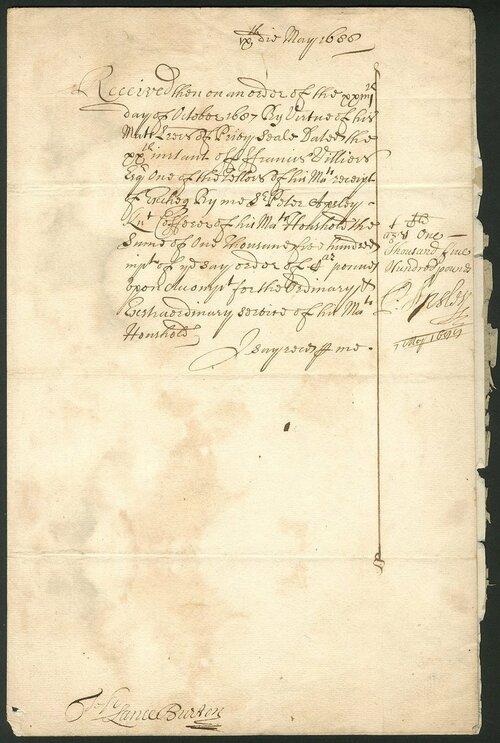 ix th die May 1688
Received then on an order of the xxiiij th
day of October 1687 By Virtue of his
Mats Lrers of Privy Seale Dated the
xx th instant off ffrancis Villiers
Esq One of the Tellors of his Mats receipt
of Excheq By me Sr Peter Apsley
Knt Cofferer of his Mats Houshold the
Sume of One Thousand five hundred
of
upon Accompt for the Ordinary &
Extraordinary service of his Mats
Houshold
I say reced p me
One
Thousand five
Hundred pounds
P. Apsley
May
Lance Burton